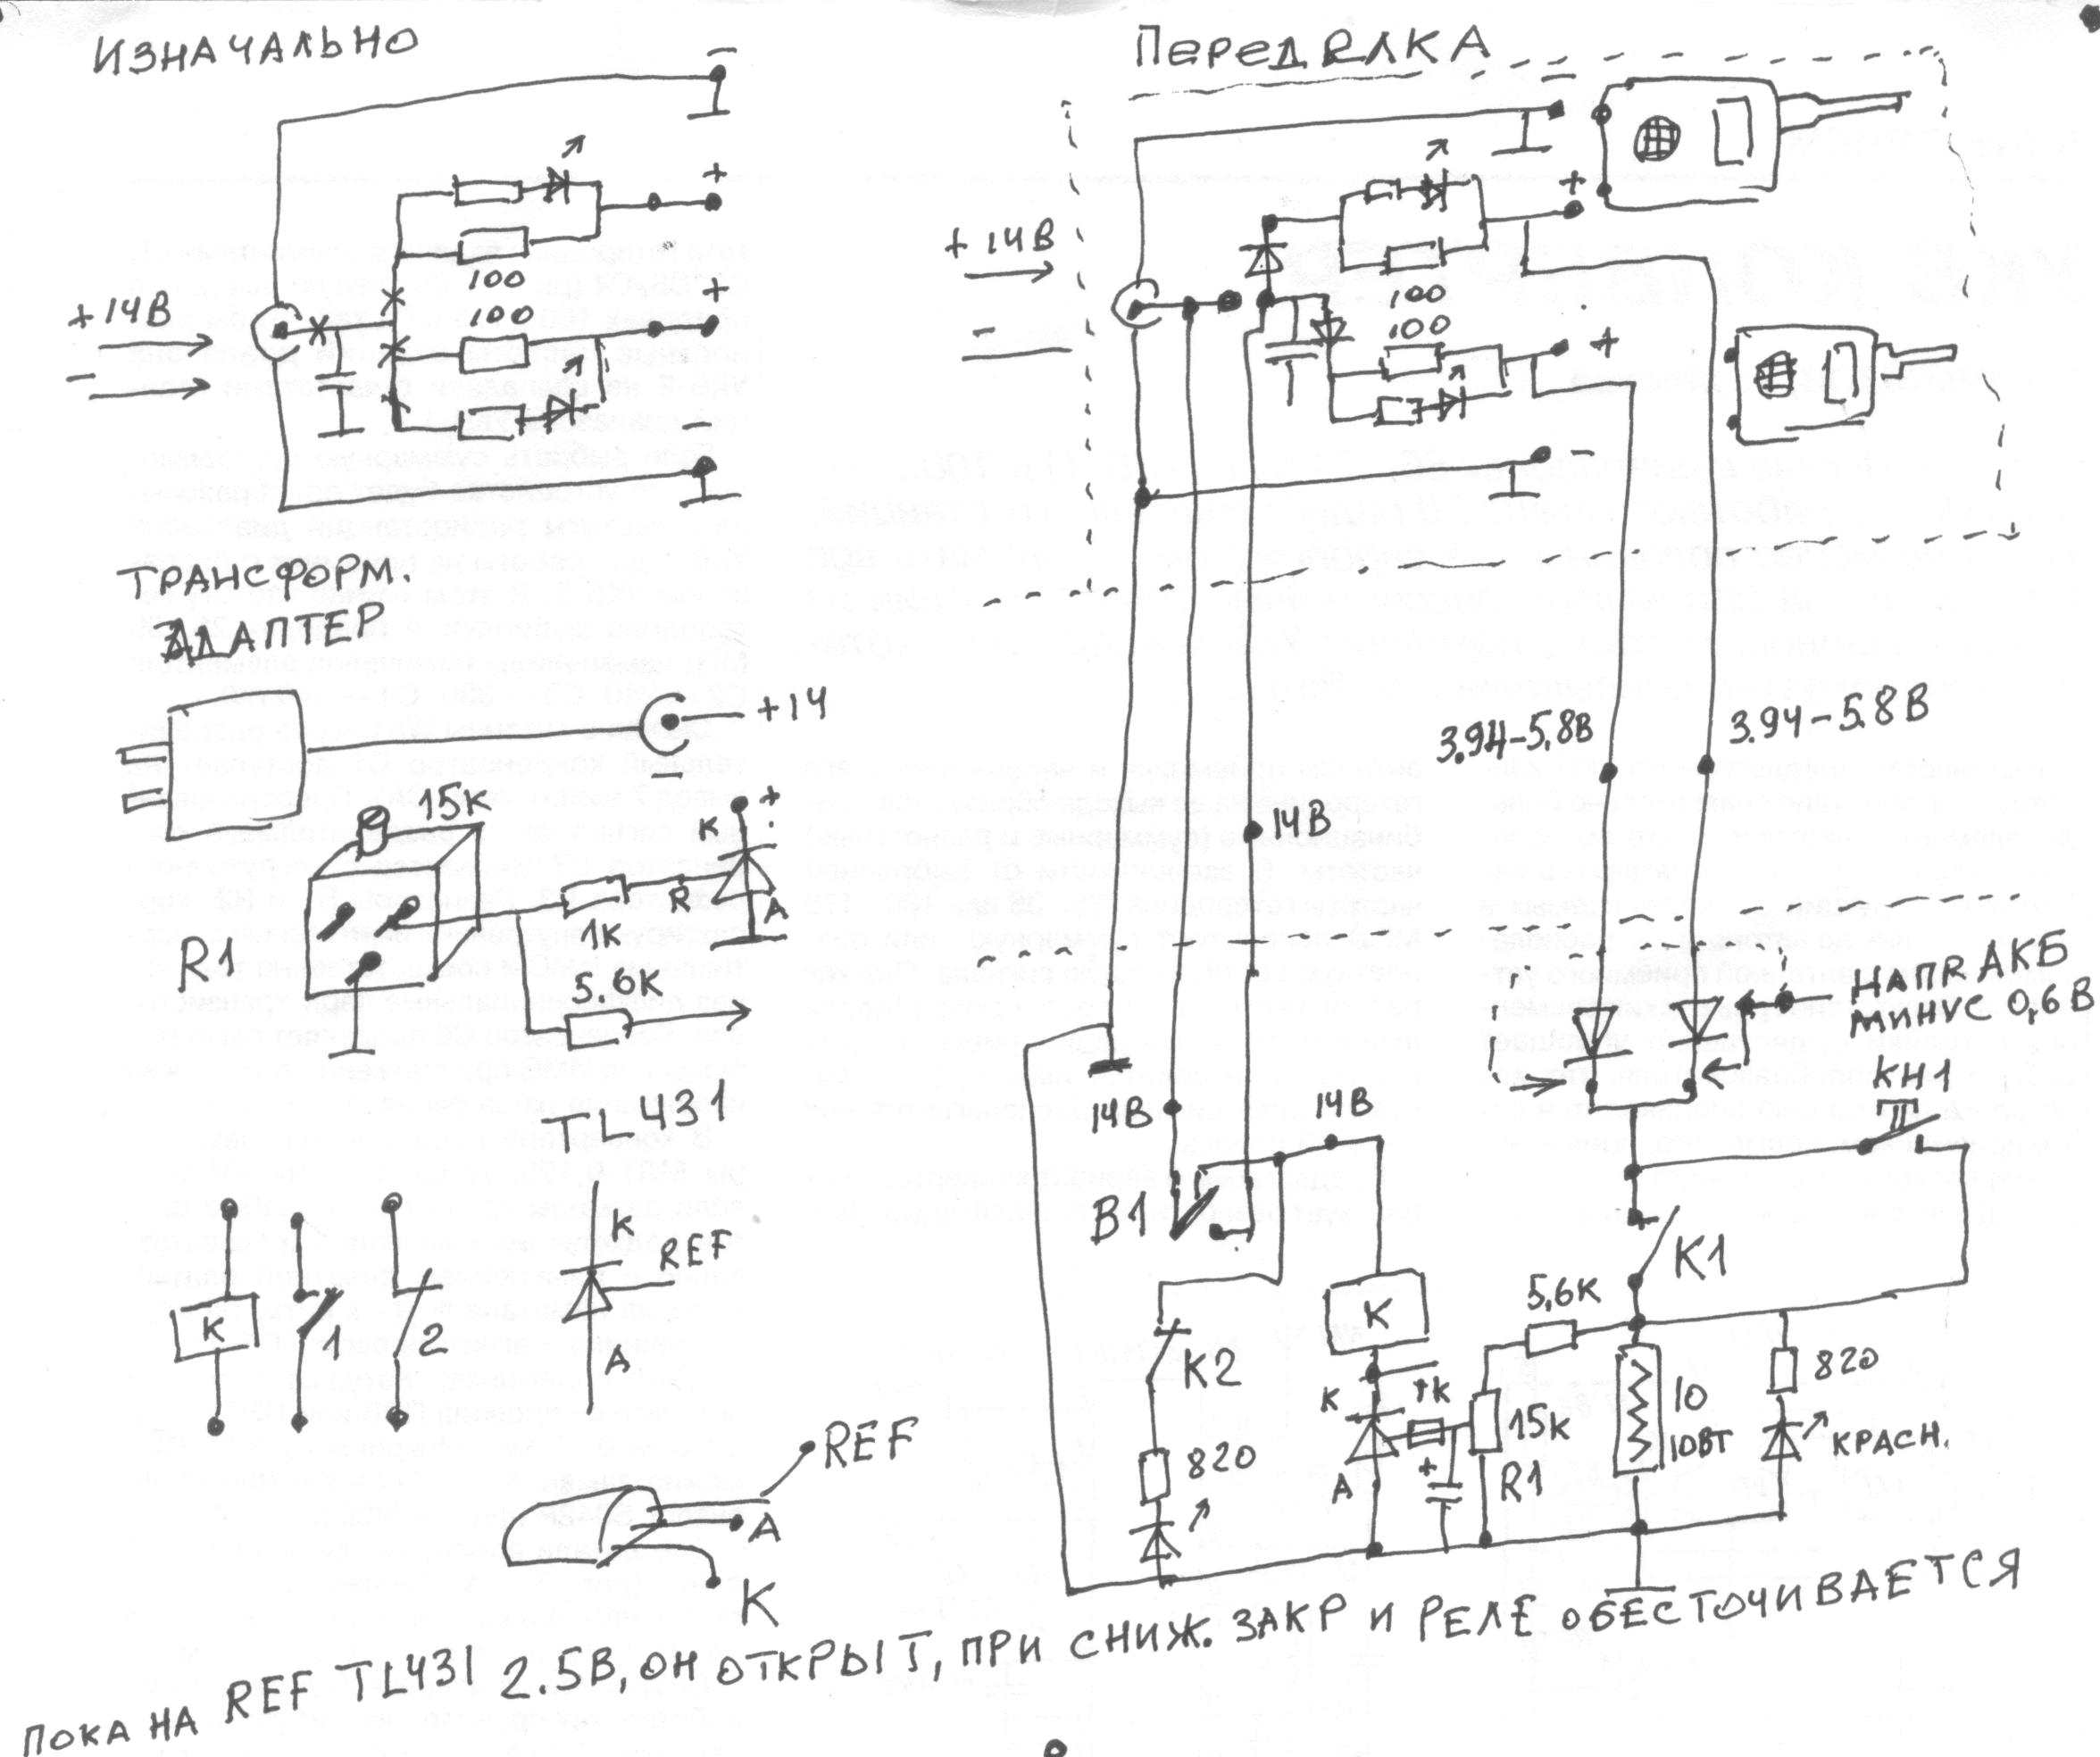 ИЗНАЧАЛЬНО
+14В
-
-
+
100
100
+
-
ТРАНСФОРМ.
АДАПТЕР
+14
-
15К
R1
1К
5.6К
+
К
R
А
TL431
К
1
2
К
REF
А
REF
А
К
ПеределКА
+14В
-
-
+
100
100
+
-
3.94-5,8В
3.94-5.8В
14В
НАПР АКБ
МИНУС 0,6В
КН1
14В
14В
В1
К1
К
5,6К
К2
1К
К
820
А
+
15К
R1
10
10ВТ
820
КРАСН.
ПОКА НА REF TL431 2.5В, ОН ОТКРЫТ, ПРИ СНИЖ. ЗАКР И РЕЛЕ ОБЕСТОЧИВАЕТСЯ